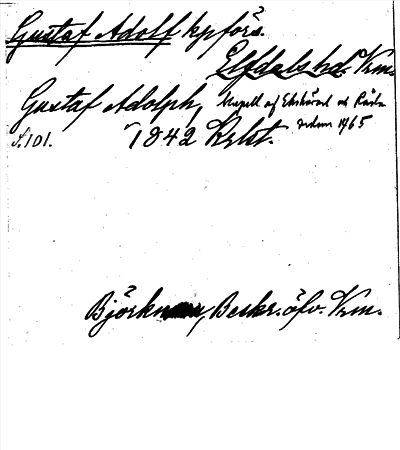 Gustaf Adolf kpförs.
Elfdals hd. Vrm.
Gustaf Adolph, Kapell af Ekshärad och Råda
sedan 1765
S. 101. 1842 Krlst.
Björkman, Beskr. öfv. Vrm.